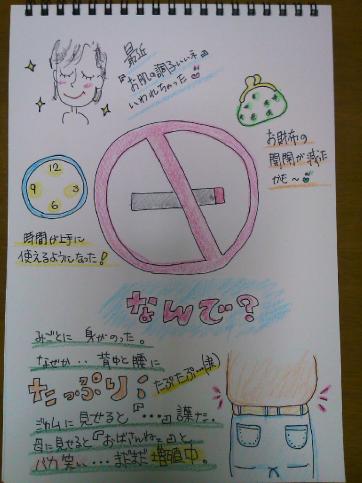 最近
『お肌の調子いいネ』
いわれちゃった
お財布の
開閉が減った
かも～
12
9 3
6
時間が上手に
使えるようになった！
なんで？
みごとに 身がのった。
なぜか‥背中と腰に
たっぷり
たぷたぷ…(涙)
ジムに見せると『・・・』謎だ.
母に見せると『おばさんねぇ』と
バカ笑い・・・まだまだ増直中。